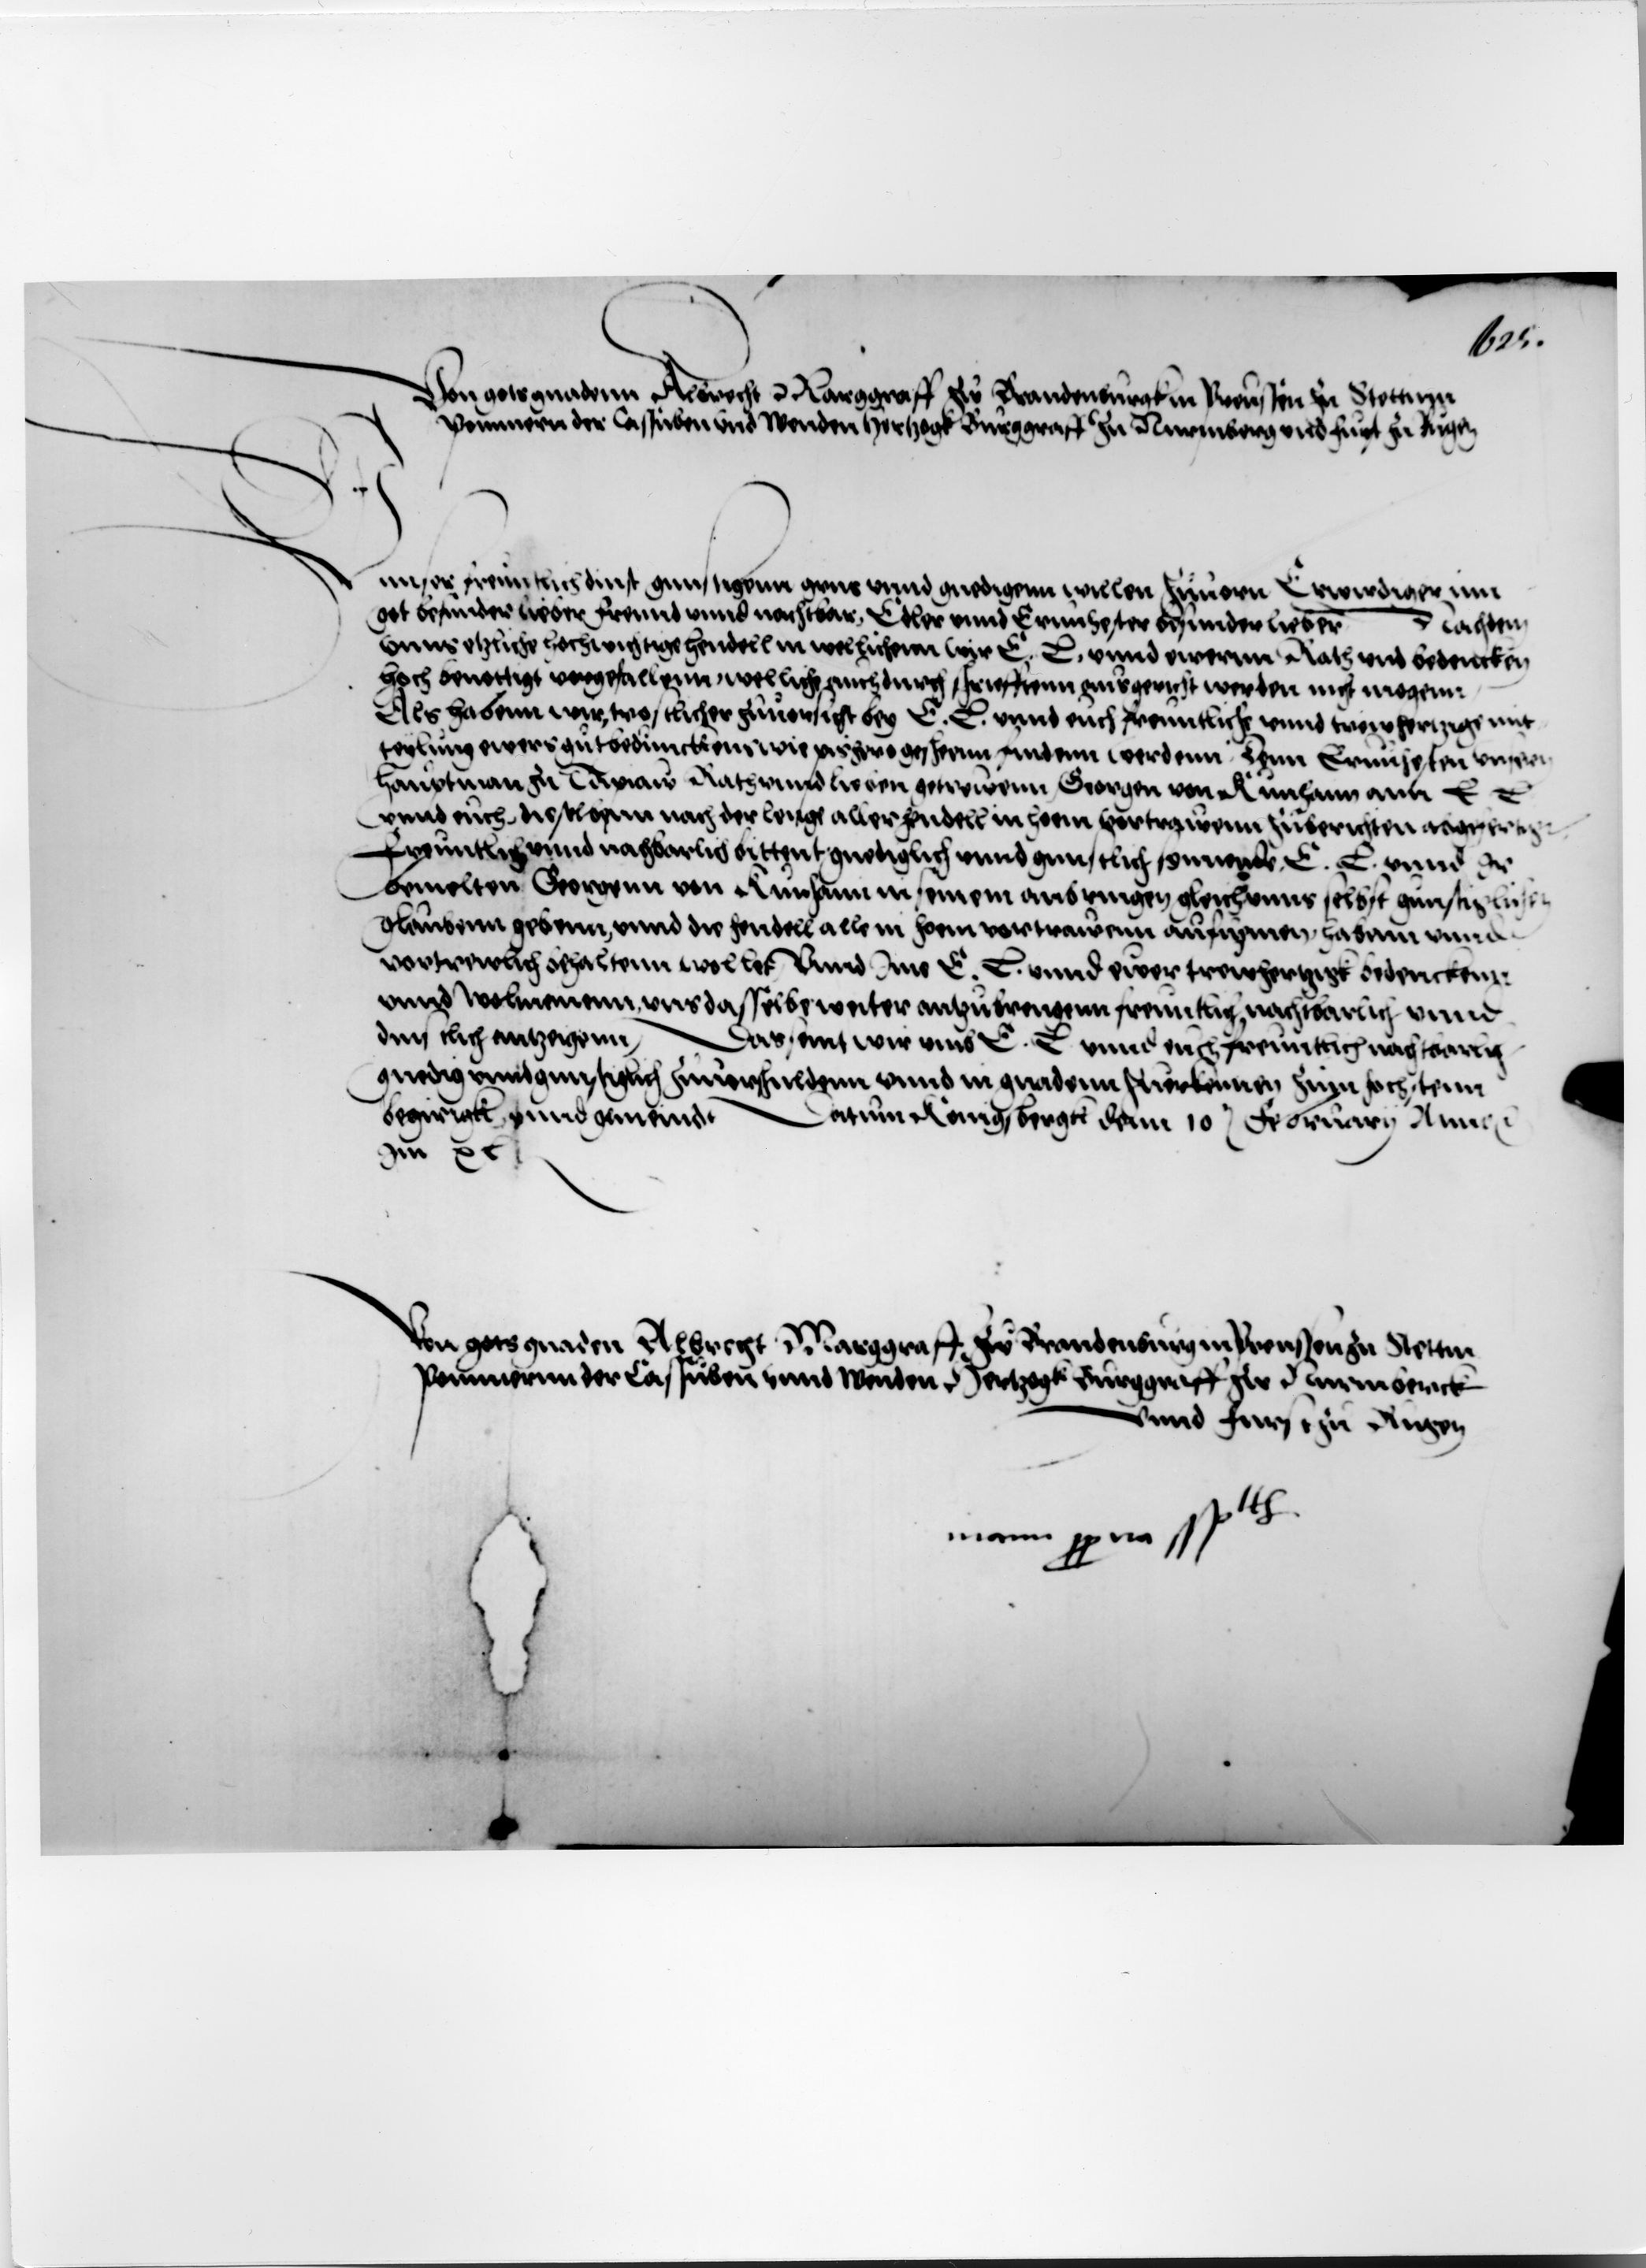 625.
Von gots gnadenn Albrecht Marggraff zw Brandenburgk in Preussen zu Stettynn
Pommern der Cassuben und Wenden hertzogk Burggraff zu Nurmberg und furst zu Rugen
unser freuntlich dinst gunstigenn grus unnd gnedigenn willen zuuorn Erwirdiger inn
got besunder lieber freund unnd nachtbar, Edler unnd Ernuhester besunder lieber Nachdem
unns etzliche hochwichtige hendell in wellichenn wir E. E. unnd ewernn Rath und bedencken
hoch benottigt vorgefallenn, welliche auch durch schriefftenn ausgericht werden nicht mogenn
Als habenn wir, trostlicher zuuorsicht bey E. E. unnd euch freuntliche unnd trewhertzige mit
teylung ewers gutbedunckens wie pishero geschenn findenn werdenn. Denn Ernuhesten unsern
hauptman zu Tapiaw Rath unnd lieben getrewenn Georgen von Kunhaim ann E E
unnd euch, dieselbigenn nach der lenge aller hendell in hoem vortrawenn zuberichten abgefertigt
Freuntlich unnd nachbarlich bittent gnediglich unnd gunstlich synnende, E. E. unnd Ir
bemelten Georgenn von Kunhaim in seinem anbringen gleich unns selbst gunstiglichen
glaubenn gebenn, unnd die hendell alle in hoem vortrawenn aufnymen, habenn unnd
vortrewlich behaltenn wollet Unnd Ime E. E. unnd ewer trewhertzigk bedenckenn
unnd wolmeinenn, uns dasselbe weiter antzubrengenn freuntlich, nachtbarlich unnd
dinstlich antzeigenn, Das seint wir umb E. E unnd euch freuntlich nachtbarlich
gnedig unnd gunstiglich zuuorschuldenn unnd in gnadenn zuerkennen zum hochstenn
begirigk, unnd gneindt Datum Konigsbergk denn 10 February Anno
Im xl
Von gots gnaden Albrecht Marggraff, zw Brandenburg in Preussen zu Stettin
Pommernn der Cassuben unnd Wenden Hertzogk Burggraff zw Nurmberck
unnd furst zu Rugen
manu ppria sspt